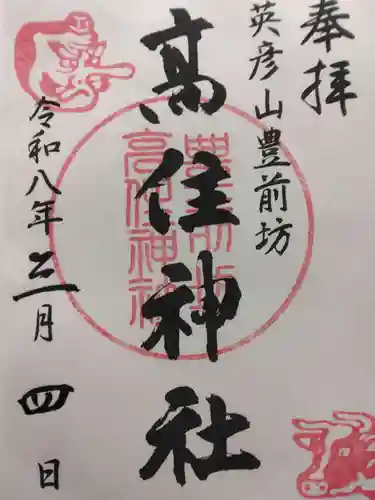 奉拝
英彦山豊前坊
高住神社
豊前坊
高住神社
令和八年三月四日